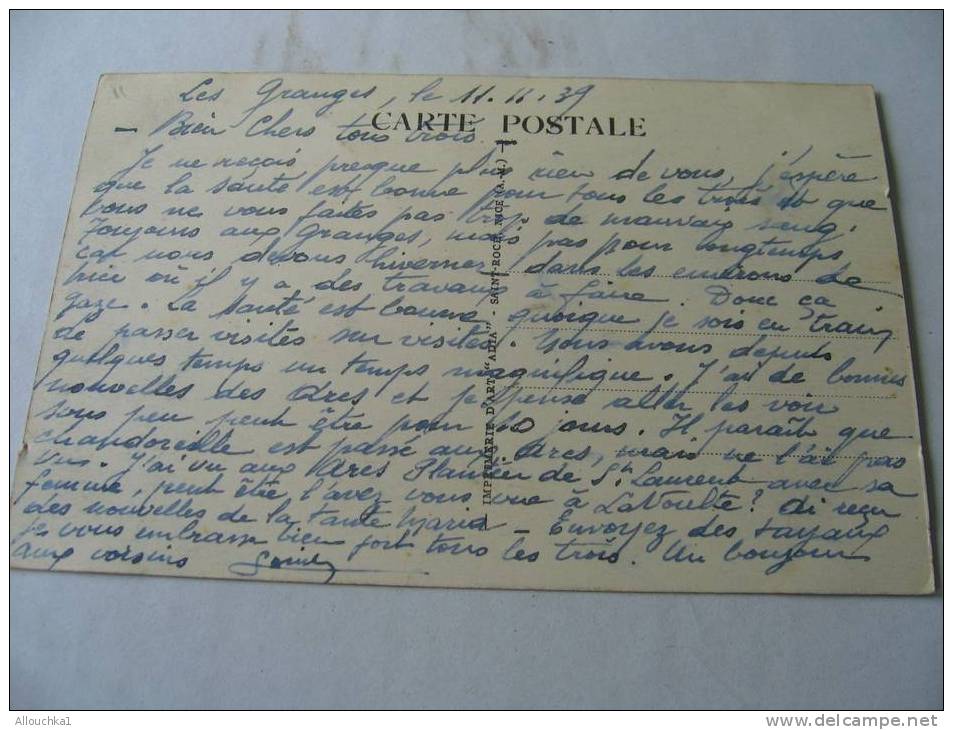 Les Granges, le 11.11.39
CARTE POSTALE
— Bien Chers tous trois.
Je ne reçois presque plus rien de vous, j'espère
que la santé est bonne pour tous les trois et que
vous ne vous faites pas trop de mauvais sang.
Toujours aux Granges, mais pas pour longtemps
car nous devons hiverner dans les environs de
Nice où il y a des travaux à faire. Donc ça
gaze. La santé est bonne quoique je sois en train
de passer visites sur visites. Nous avons depuis
quelques temps un temps magnifique. J'ai de bonnes
nouvelles des Arcs et je pense aller les voir
sous peu peut être pour 10 jours. Il paraît que
chandoreille est passé aux Arcs, mais ne l'ai pas
vu. J'ai vu aux Arcs Plantier de St Laurent avec sa
femme, peut être, l'avez vous vue à LaVoulte? Ai reçu
des nouvelles de la tante Maria — Envoyez des
Je vous embrasse bien fort tous les trois. Un bonjour
aux voisins
IMPRIMERIE D'ART "ADIA" - SAINT-ROCH, NICE (A.-M.)
Allouchka1
http://www.delcampe.net